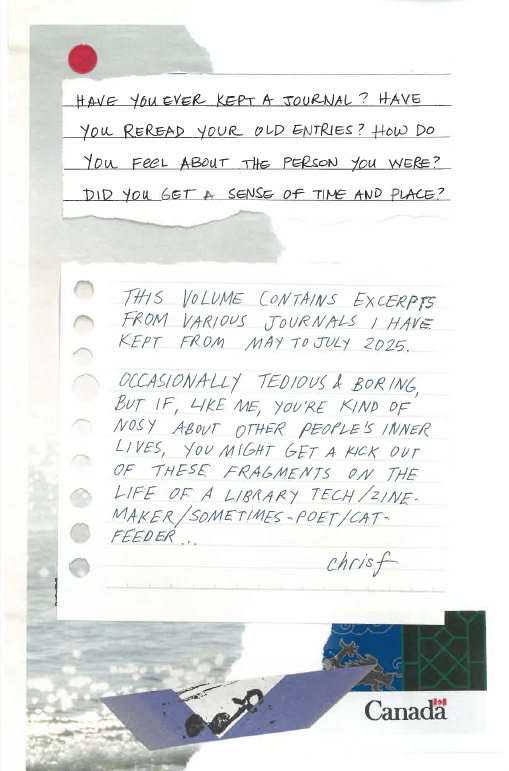 HAVE YOU EVER KEPT A JOURNAL? HAVE
YOU REREAD YOUR OLD ENTRIES? HOW DO
YOU FEEL ABOUT THE PERSON YOU WERE?
DID YOU GET A SENSE OF TIME AND PLACE?
THIS VOLUME CONTAINS EXCERPTS
FROM VARIOUS JOURNALS I HAVE
KEPT FROM MAY TO JULY 2025.
OCCASIONALLY TEDIOUS & BORING,
BUT IF, LIKE ME, YOU'RE KIND OF
NOSY ABOUT OTHER PEOPLE'S INNER
LIVES, YOU MIGHT GET A KICK OUT
OF THESE FRAGMENTS ON THE
LIFE OF A LIBRARY TECH/ZINE-
MAKER/SOMETIMES-POET/CAT-
FEEDER...
chrisf
Canada